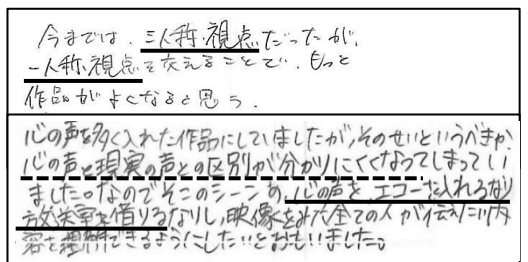 今までは、三人称視点だったが、
一人称視点を交えることで、もっと
作品がよくなると思う。
心の声を多く入れた作品にしていましたが、そのせいというべきか
心の声と現実の声との区別が分かりにくくなってしまってい
ました。なのでそこのシーンの、心の声を、エコーを入れるなり
放送室を借りるなりし、映像をみた全ての人が伝えたい内
容を理解できるようにしたいとおもいました。